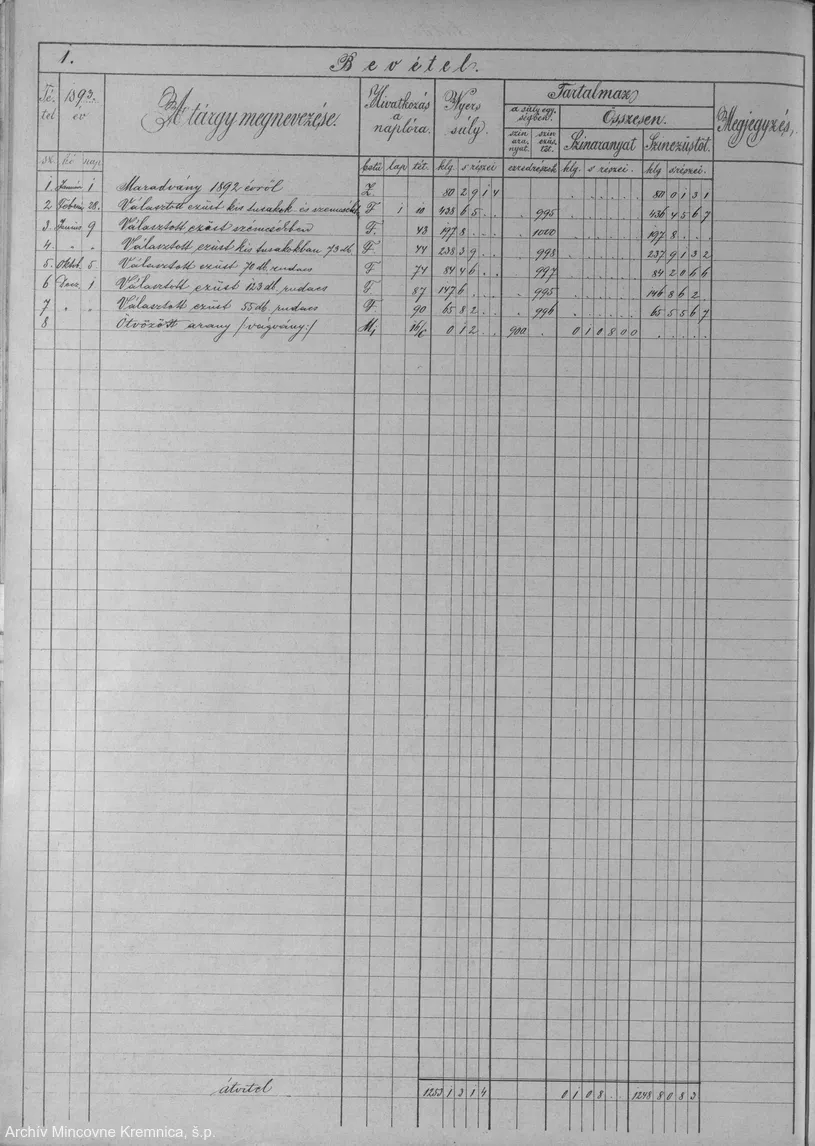 1.
Bevétel.
Té-
tel
1893.
év
A tárgy megnevezése.
Hivatkozás
a
naplóra.
Nyers
súly.
Tartalmaz
a súlyegy-
ségben.
Összesen.
Megjegyzés.
szín
ara-
nyat.
szín
ezüs-
töt.
Színaranyat
Színezüstöt.
sz. hó nap lap tét. klg. s részei ezredrészek klg. s részei. klg. s részei.
1 Január 1 Maradvány 1892 évről Z. 80 2914 80 0131
2 28. Választott ezüst kis tusakok és F 1 10 438 65 995 436 4567
3. Junius 9 Választott ezüst szemcsékben F. 43 197 8 1000 197 8
4. " " Választott ezüst kis tusakokban 73 db. F. 44 238 39 998 237 9132
5. Októb. 5. Választott ezüst 70 db. rudacs F 74 84 46 997 84 2066
6 Dec. 1 Választott ezüst 123 db. rudacs F 87 147 6 995 146 862
7 " " Választott ezüst 55 db. rudacs F. 90 65 82 996 65 5567
8 Ötvözött arany /:vágvány:/ 0 12 900 0 10800
átvitel 1253 1314 0 108 1248 8083
Archív Mincovne Kremnica, š.p.